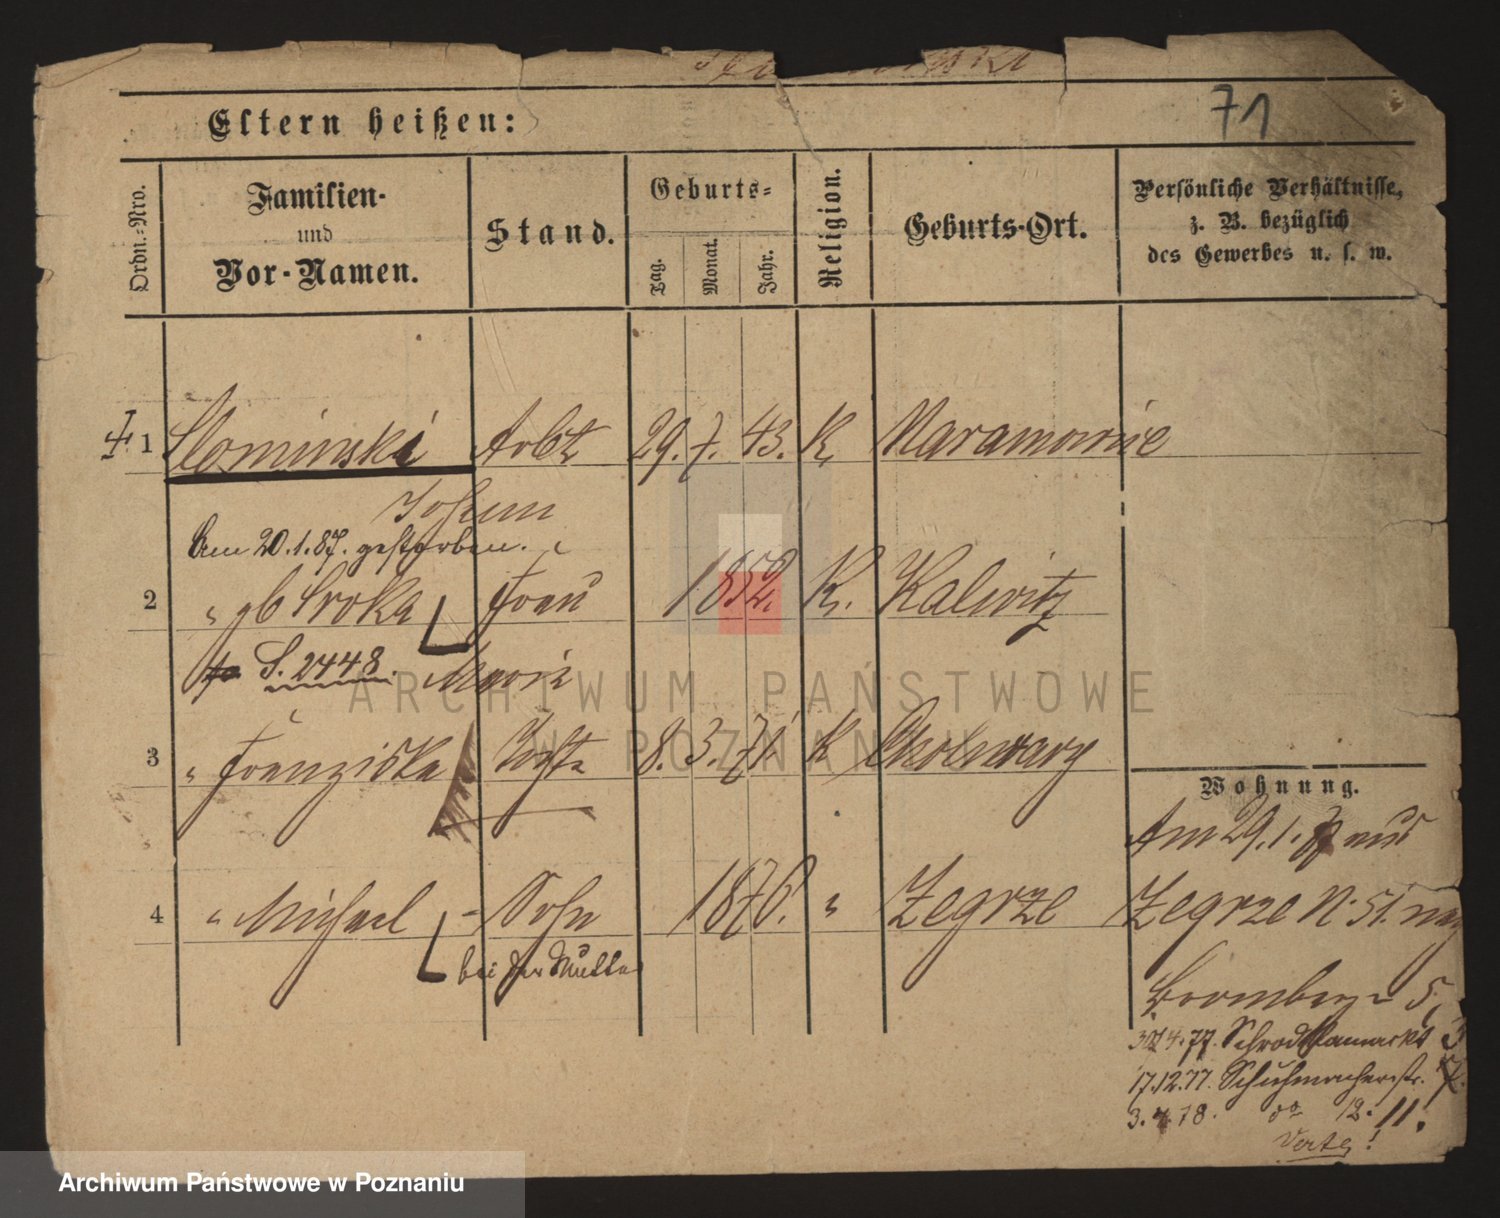 71
Eltern heißen:
Ordn.-Nro.
Familien-
und
Vor-Namen.
Stand.
Geburts-
Tag.
Monat.
Jahr.
Religion.
Geburts-Ort.
Persönliche Verhältnisse,
z. B. bezüglich
des Gewerbes u. s. w.
1 Slominski Arbt 29. 7. 43. K. Naramowice
Johann
Am 20.1.87. gestorben.
2 " gb Sroka Frau 1852. K. Kalwitz
S. 2448. Maria
3 " Franziska Tocht 8. 3. 71. K
Wohnung.
Am 29.1. aus
4 " Michael - Sohn 1876. " Zegrze
Zegrze N. 51. nach
bei der Mutter
Bromberg 5,
30/4.77. Schrodkamarkt 3
17.12.77. Schuhmacherstr. 7.
3.4.78. do 12. 11.
Verte!
ARCHIWUM PAŃSTWOWE
W POZNANIU
Archiwum Państwowe w Poznaniu